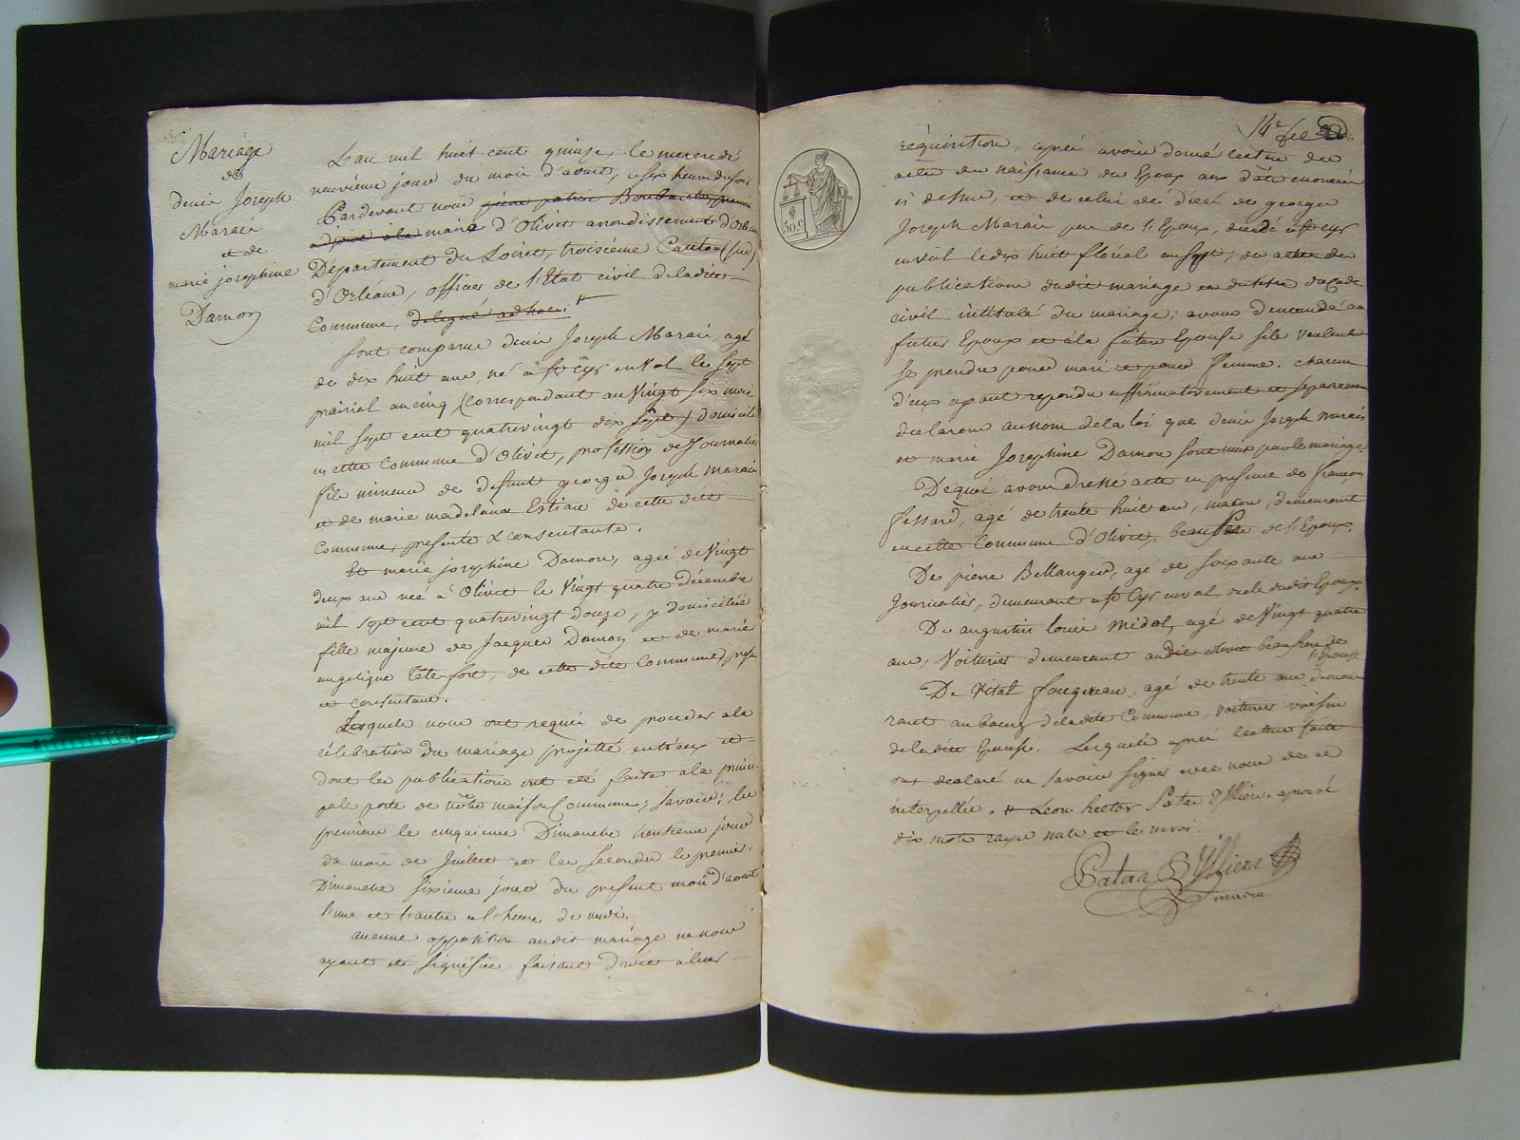 Mariage
de
denis Joseph
Marais
et de
marie josephine
Damon
L'an mil huit cent quinze, le mercredi
neuvième jour du mois d'aoust, a six heures du soir
Pardevant nous pierre patrice
adjoint à la mairie d'Olivet arrondissement d'Orléans
Département du Loiret, troisième Canton (sud)
d'Orléans, officier de l'Etat civil de ladite
Commune, delegué ad hoc.
Sont comparus denis Joseph Marais, agé
de dix huit ans, né à st Cyr en Val le sept
prairial an cinq (Correspondant au Vingt six mai
mil sept cent quatrevingt dix sept) domicilié
en cette Commune d'Olivet, profession de Journalier
fils mineur de defunt george Joseph marais
et de marie madelaine Estiau de cette dite
Commune, présente & consentante.
Et marie josephine Damon, agée de Vingt
deux ans née à Olivet le Vingt quatre décembre
mil sept cent quatrevingt douze, y domiciliée
fille majeure de Jacques Damon et de marie
angelique Tête fort, de cette dite Commune, présens
et consentans.
Lesquels nous ont requis de proceder a la
célébration du mariage projetté entr'eux et
dont les publications ont été faites a la princi-
pale porte de notre maison Commune, savoir; les
premieres le cinquieme Dimanche trentieme jour
du mois de Juillet et les secondes le premier
Dimanche sixieme jour du present mois d'aoust
l'une et l'autre a l'heure de midi.
aucune opposition audit mariage ne nous
ayant été signifiée faisant droit a leur
14e feuil
réquisition, après avoir donné lecture des
actes de naissance des Epoux aux dates enoncées
ci dessus, et de celui de décès de george
Joseph Marais pere de l'Epoux, decedé a st Cyr
en val le dix huit floréal an sept; des actes de
publications dudit mariage et du titre du code
civil intitulé du mariage; avons demandé au
futur Epoux et à la future Epouse s'ils veulent
se prendre pour mari et pour femme. chacun
d'eux ayant repondu affirmativement et separement
declarons au nom de la loi que denis Joseph marais
et marie Josephine Damon sont unis par le mariage.
De quoi avons dressé acte en presence de françois
fessard, agé de trente huit ans, maçon, demeurant
en cette Commune d'Olivet, beau frere de l'Epoux.
De pierre Bellanger, agé de soixante ans
Journalier, demeurant a st Cyr en val oncle dudit Epoux.
De augustin louis midol, agé de Vingt quatre
ans, Voiturier demeurant audit olivet beau frere de
l'Epouse
De Vital fougereau, agé de trente ans demeu
rant au bourg de ladite Commune, voiturier voisin
de ladite Epouse. Lesquels après lecture faite
ont declaré ne savoir signer avec nous de ce
interpellés. # Leon hector Patas d'Illiers. aprouvé
dix mots rayés nuls et le renvoi.
Patas D'Illiers
maire